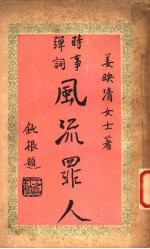 姜映清女士著
時事
彈詞
風流罪人
鈍根題